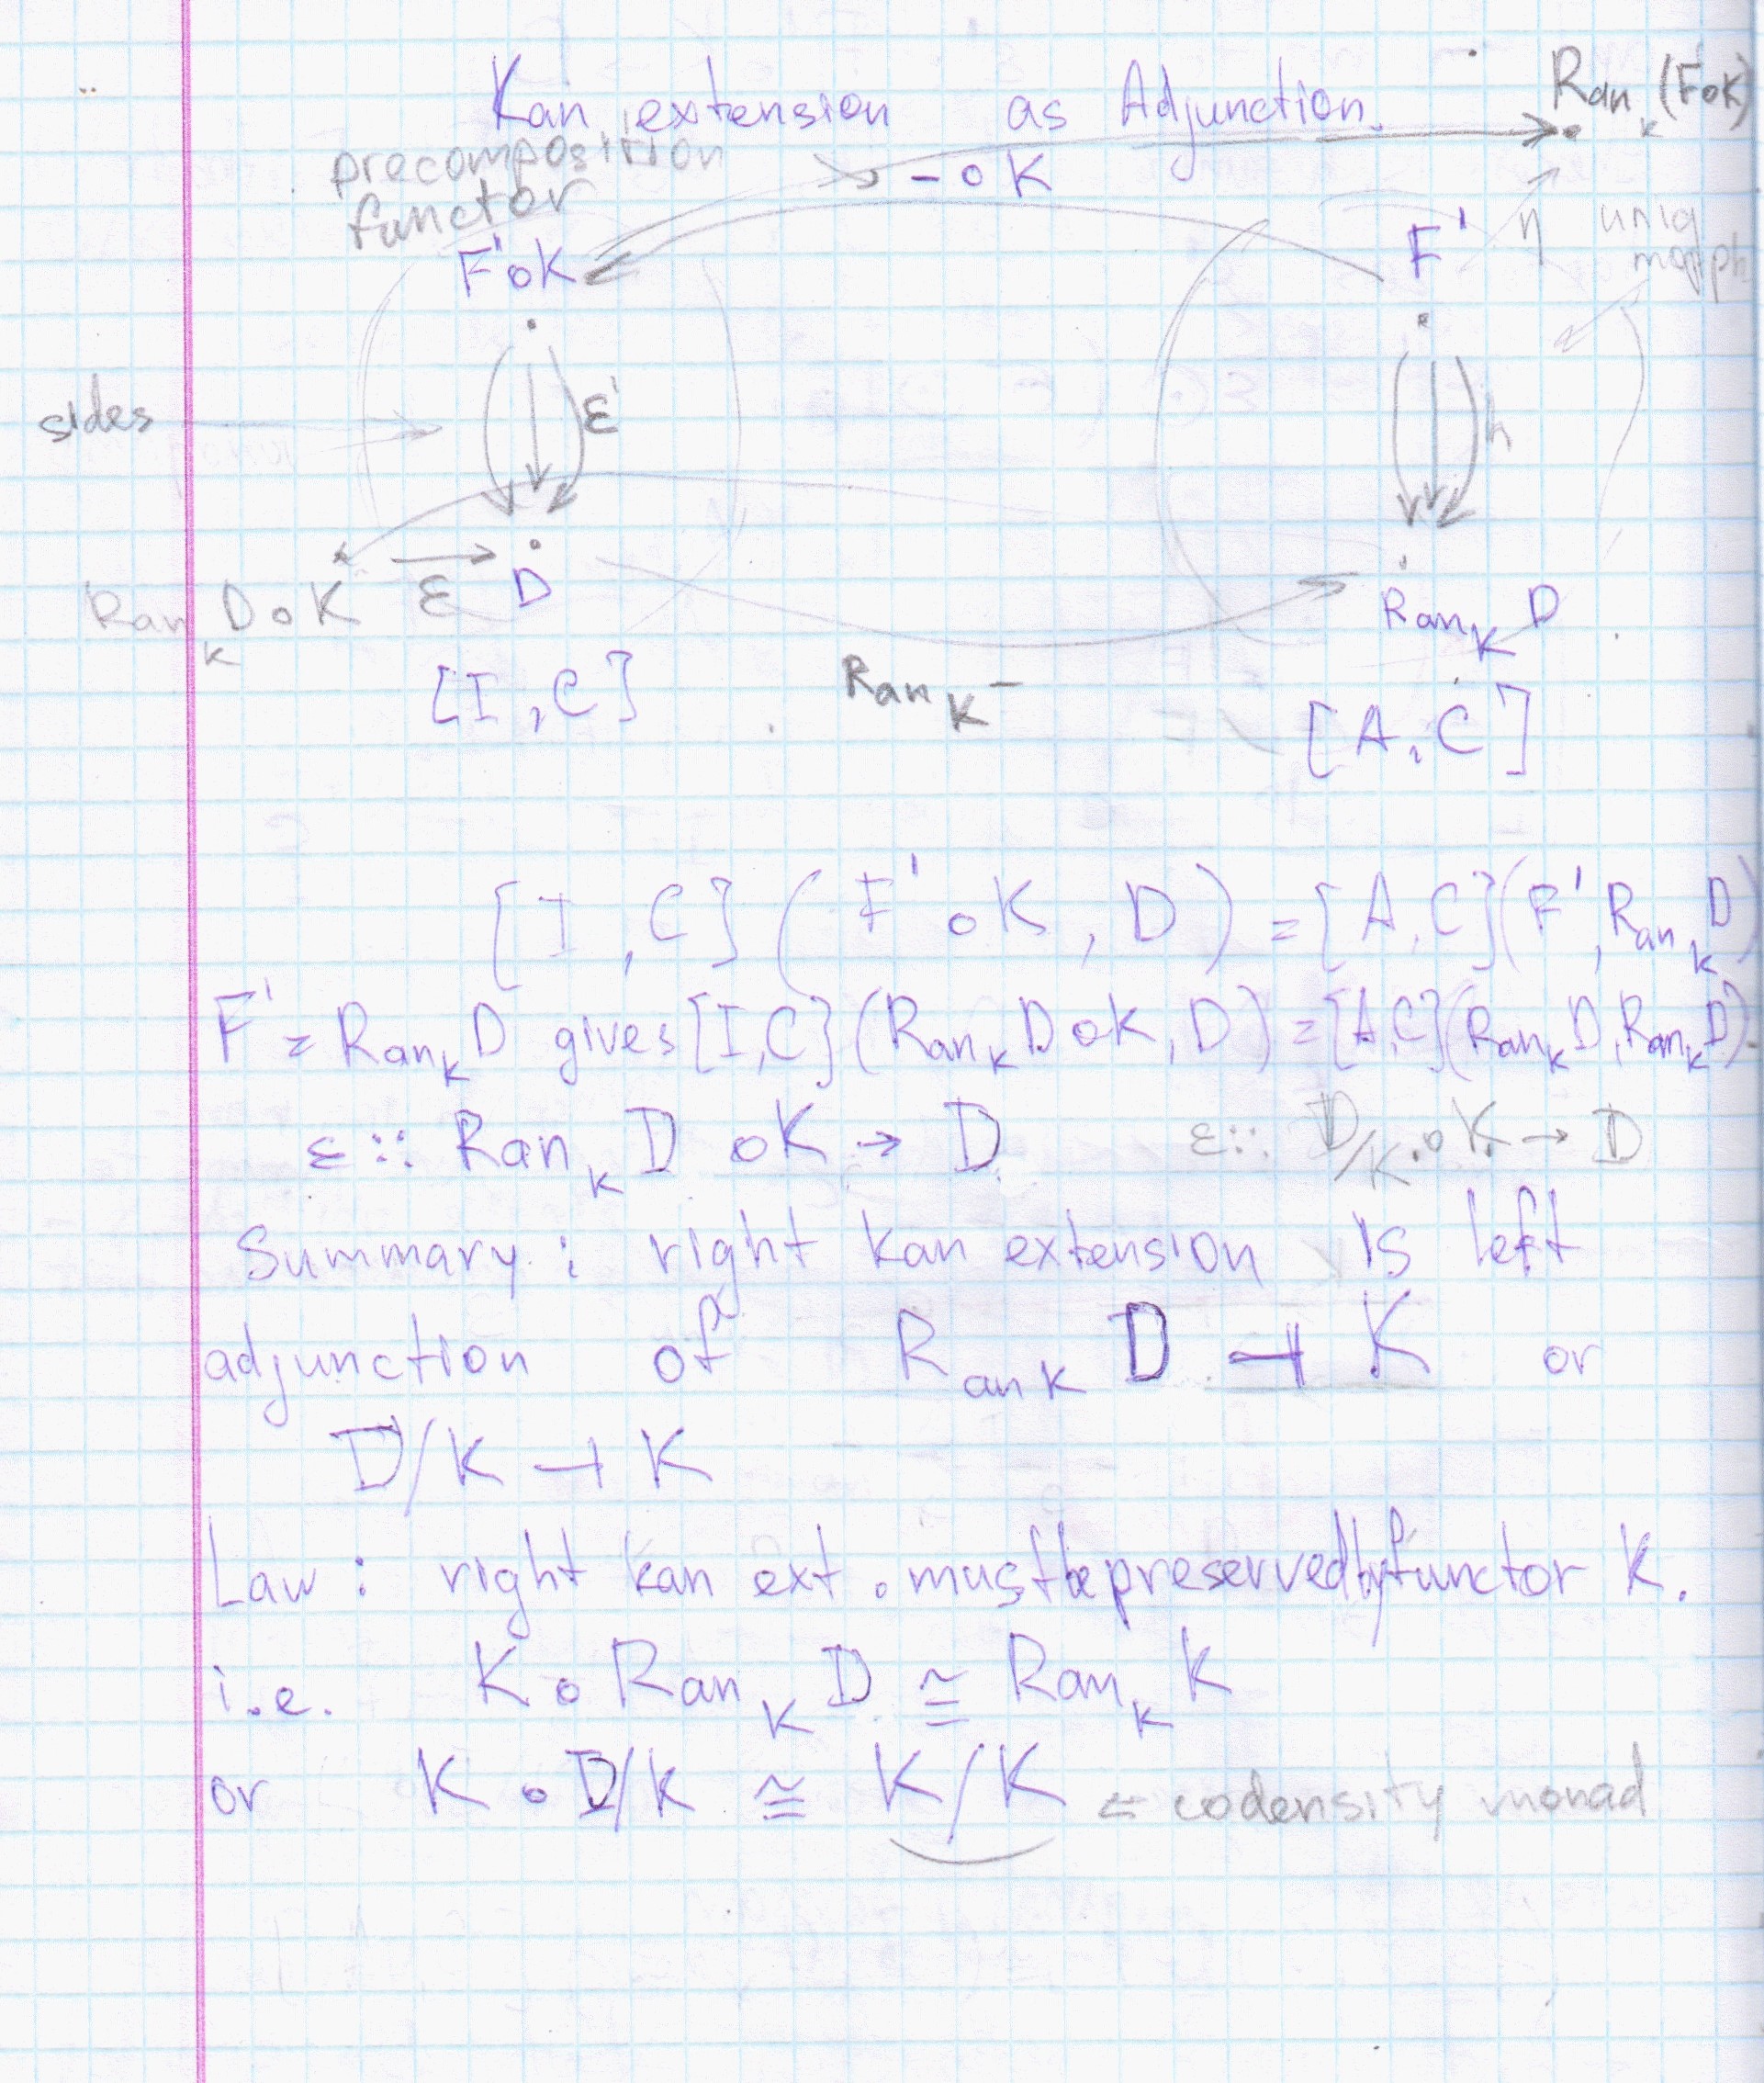 Kan extension as Adjunction.
Ran_K (F'∘K)
precomposition
functor
- ∘ K
F'∘K
F'
η uniq
morph
sides
ε'
h
Ran_K D∘K
ε
D
Ran_K D
[I, C]
Ran_K -
[A, C]
[I, C] (F'∘K, D) = [A, C](F', Ran_K D)
F' = Ran_K D gives [I,C](Ran_K D∘K, D) = [A,C](Ran_K D, Ran_K D)
ε :: Ran_K D ∘K → D ε :: D/K ∘ K → D
Summary: right kan extension is left
adjunction of Ran_K D ⊣ K or
D/K ⊣ K
Law: right kan ext. must be preserved by functor K.
i.e. K ∘ Ran_K D ≅ Ran_K K
or K ∘ D/K ≅ K/K ⇐ codensity monad